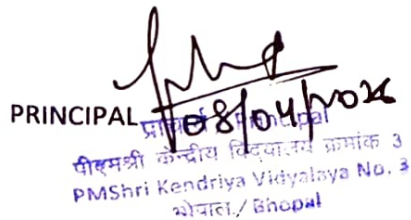 PRINCIPAL
08/04/2026
प्राचार्य / Principal
पीएमश्री केन्द्रीय विद्यालय क्रमांक 3
PMShri Kendriya Vidyalaya No. 3
भोपाल / Bhopal